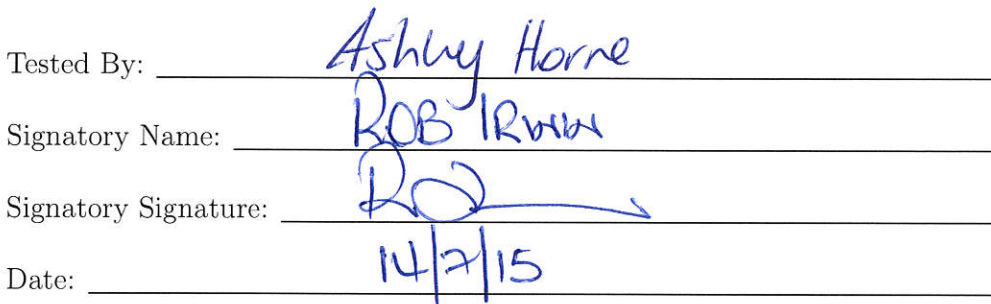 Tested By: Ashley Horne
Signatory Name: ROB IRWIN
Signatory Signature:
Date: 14/7/15